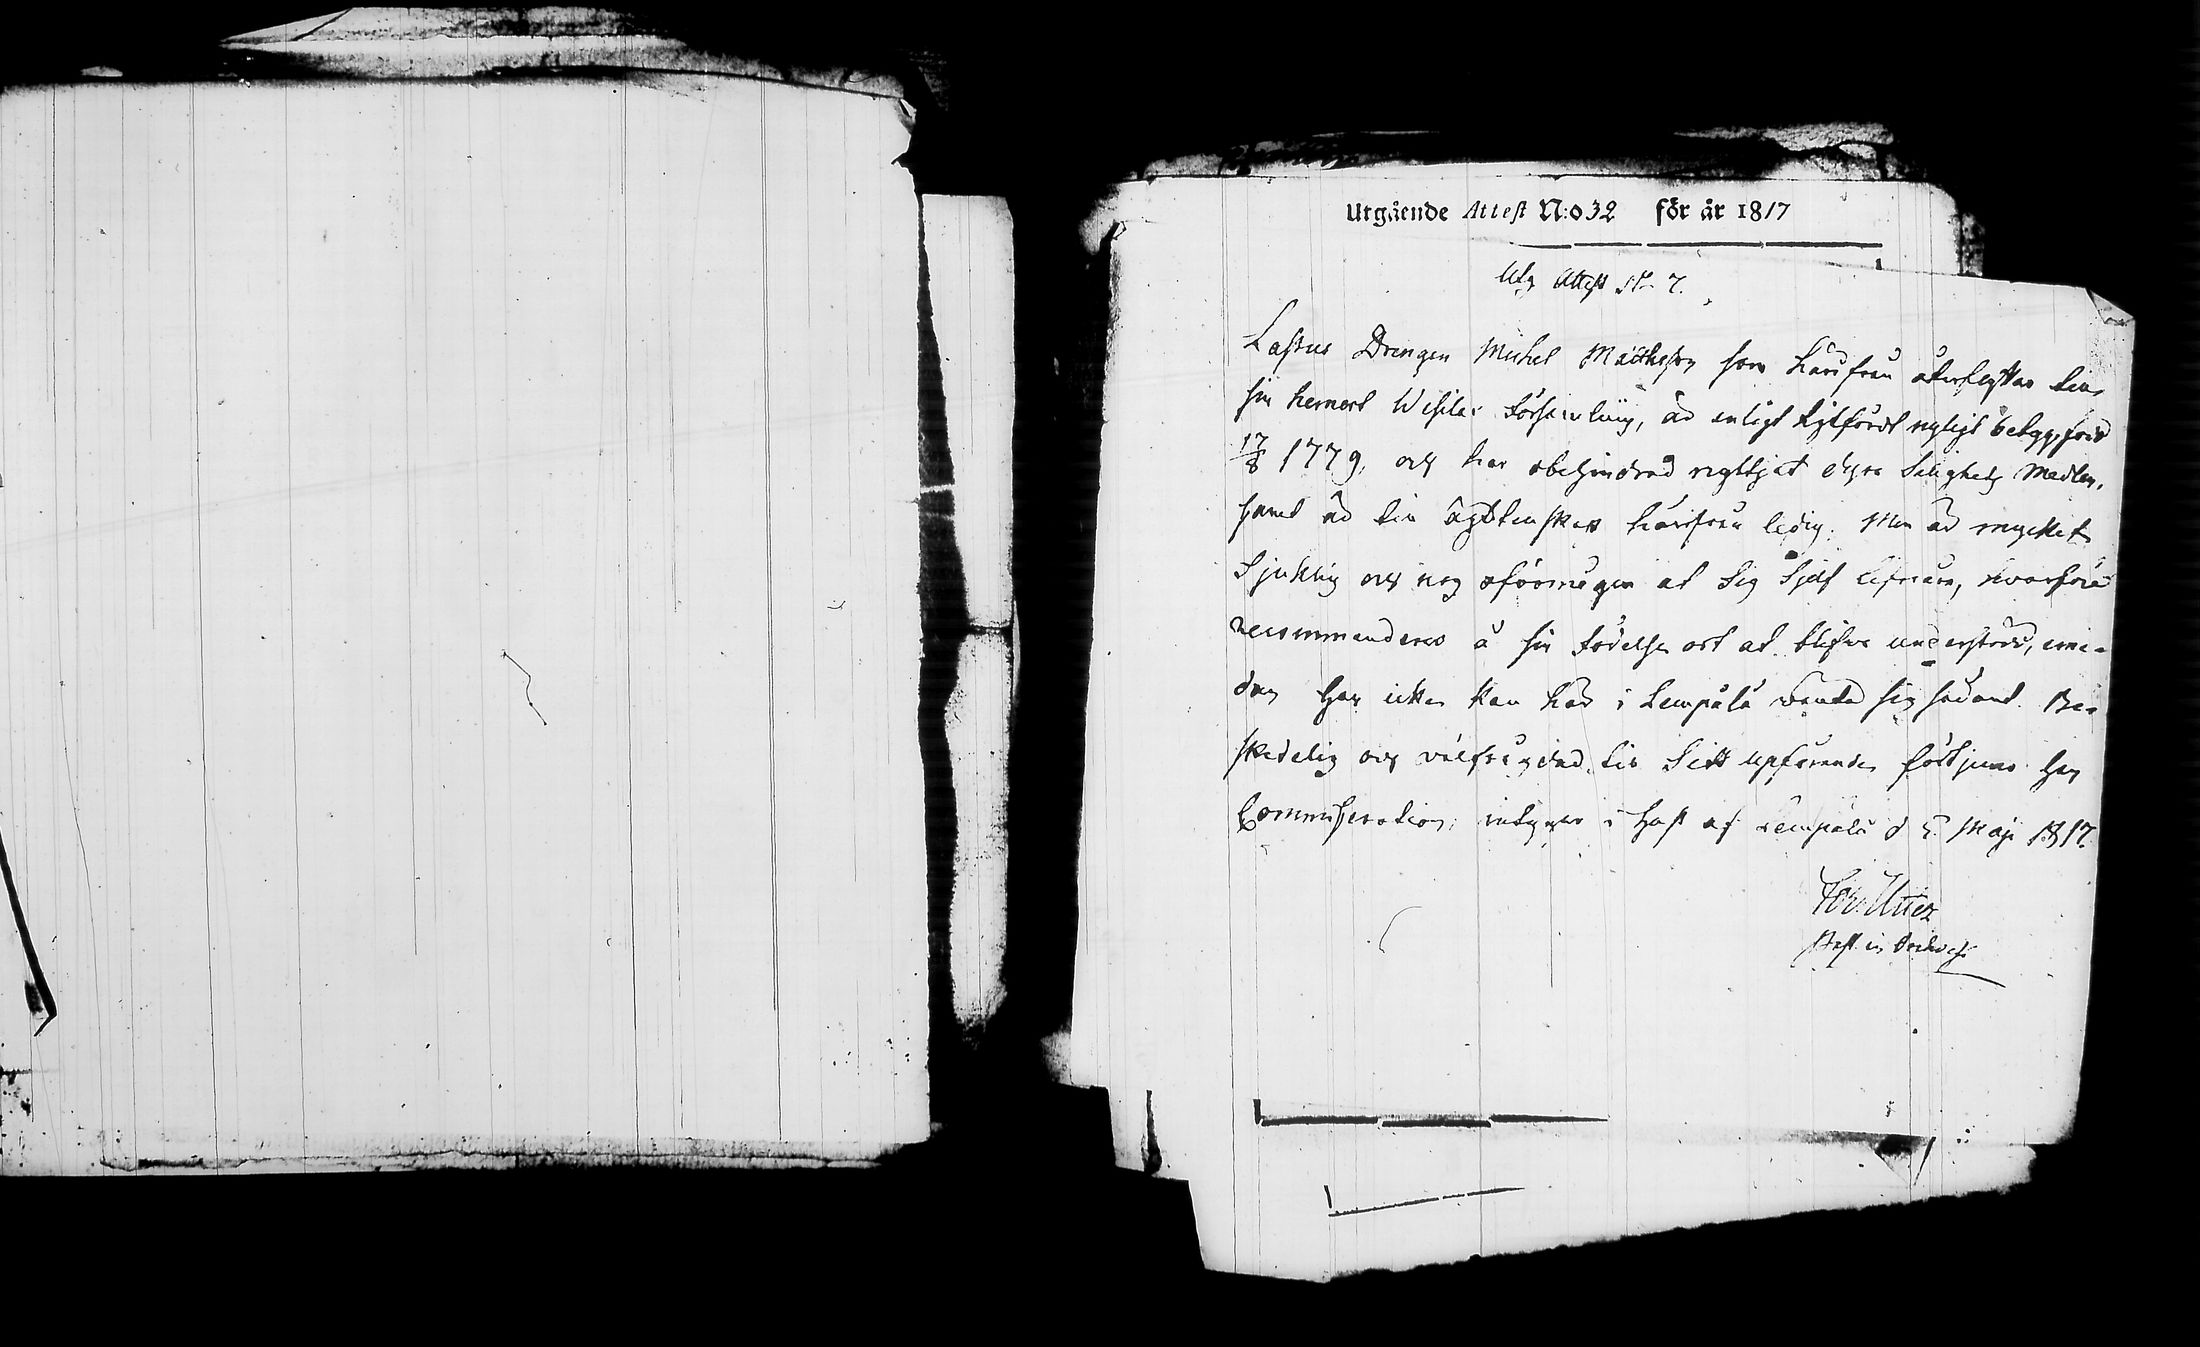 Utgående Attest N:o 32 för år 1817
Utg Attest N 7.
Drengen Michel Matthsson som härifrån återflyttar till
sin hemort Wesilax Församling, är enligt hitfördt nyligt betyg, född
17/8 1779, och har obehindrad nyttjat dyra Salighets Medlen,
samt är till ägtenskap härifrån ledig. Men är mycket
Sjuklig och nog oförmögen at Sig Sjelf lifnära, hvarföre
recommenderas å sin födelse ort at blifva understödd, eme-
dan han icke kan här i Lempälä vänta sig sådant. Be-
skedelig och välfrägdad till Sitt upförande förtjenar han
Commiseration; intygar i Hast af Lempälä d 5 Maji 1817.